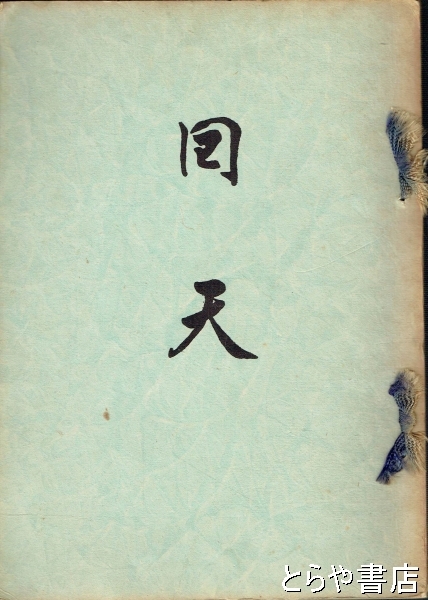 回天
とらや書店